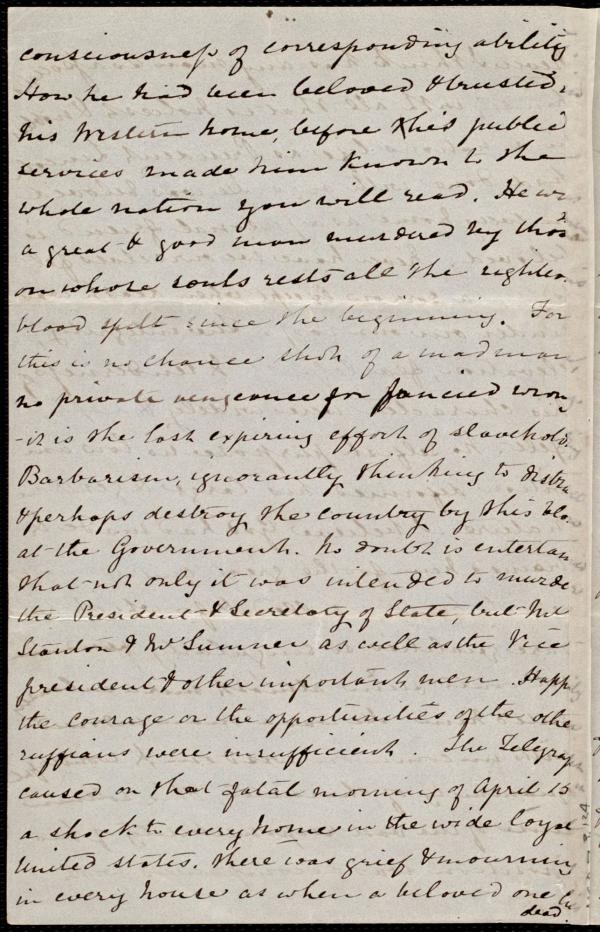 consciousness of corresponding ability
How he had been beloved & trusted,
his Western home, before this public
services made him known to the
whole nation you will read. He w
a great & good man murdered by thos
on whose souls rests all the righteo
blood spilt since the beginning. For
this is no chance shot of a madman
no private vengeance for fancied wrong
-it is the last expiring effort of slavehold
Barbarism, ignorantly thinking to distra
& perhaps destroy the country by this blo
at the Government. No doubt is entertain
that not only it was intended to murde
the President & Secretary of State, but Mr
Stanton & Mr Sumner as well as the Vice
president & other important men. Happ
the courage or the opportunities of the othe
ruffians were insufficient. The Telegrap
caused on that fatal morning of April 15
a shock to every home in the wide loyal
United States. There was grief & mourning
in every house as when a beloved one lie
dead.